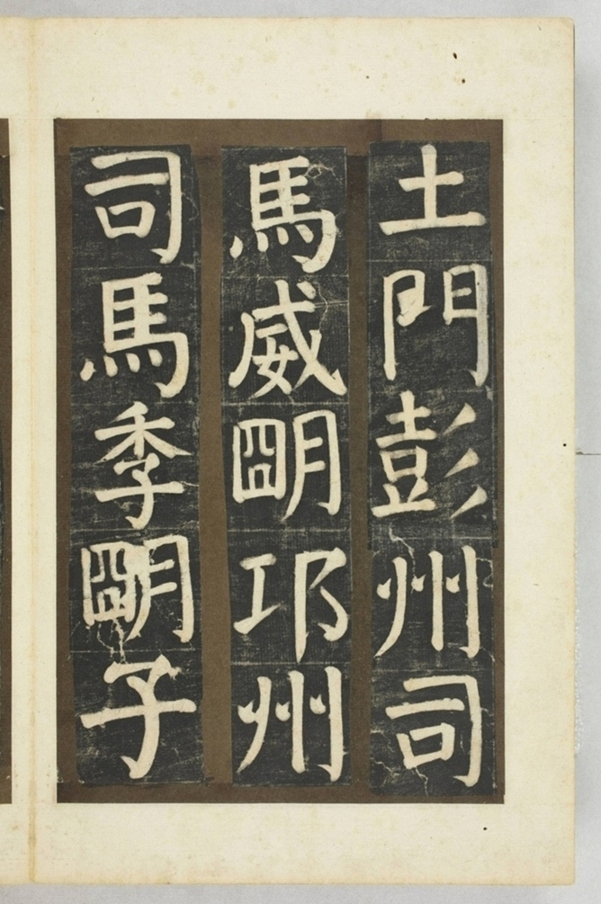 土門彭州司
馬威朙邛州
司馬季朙子